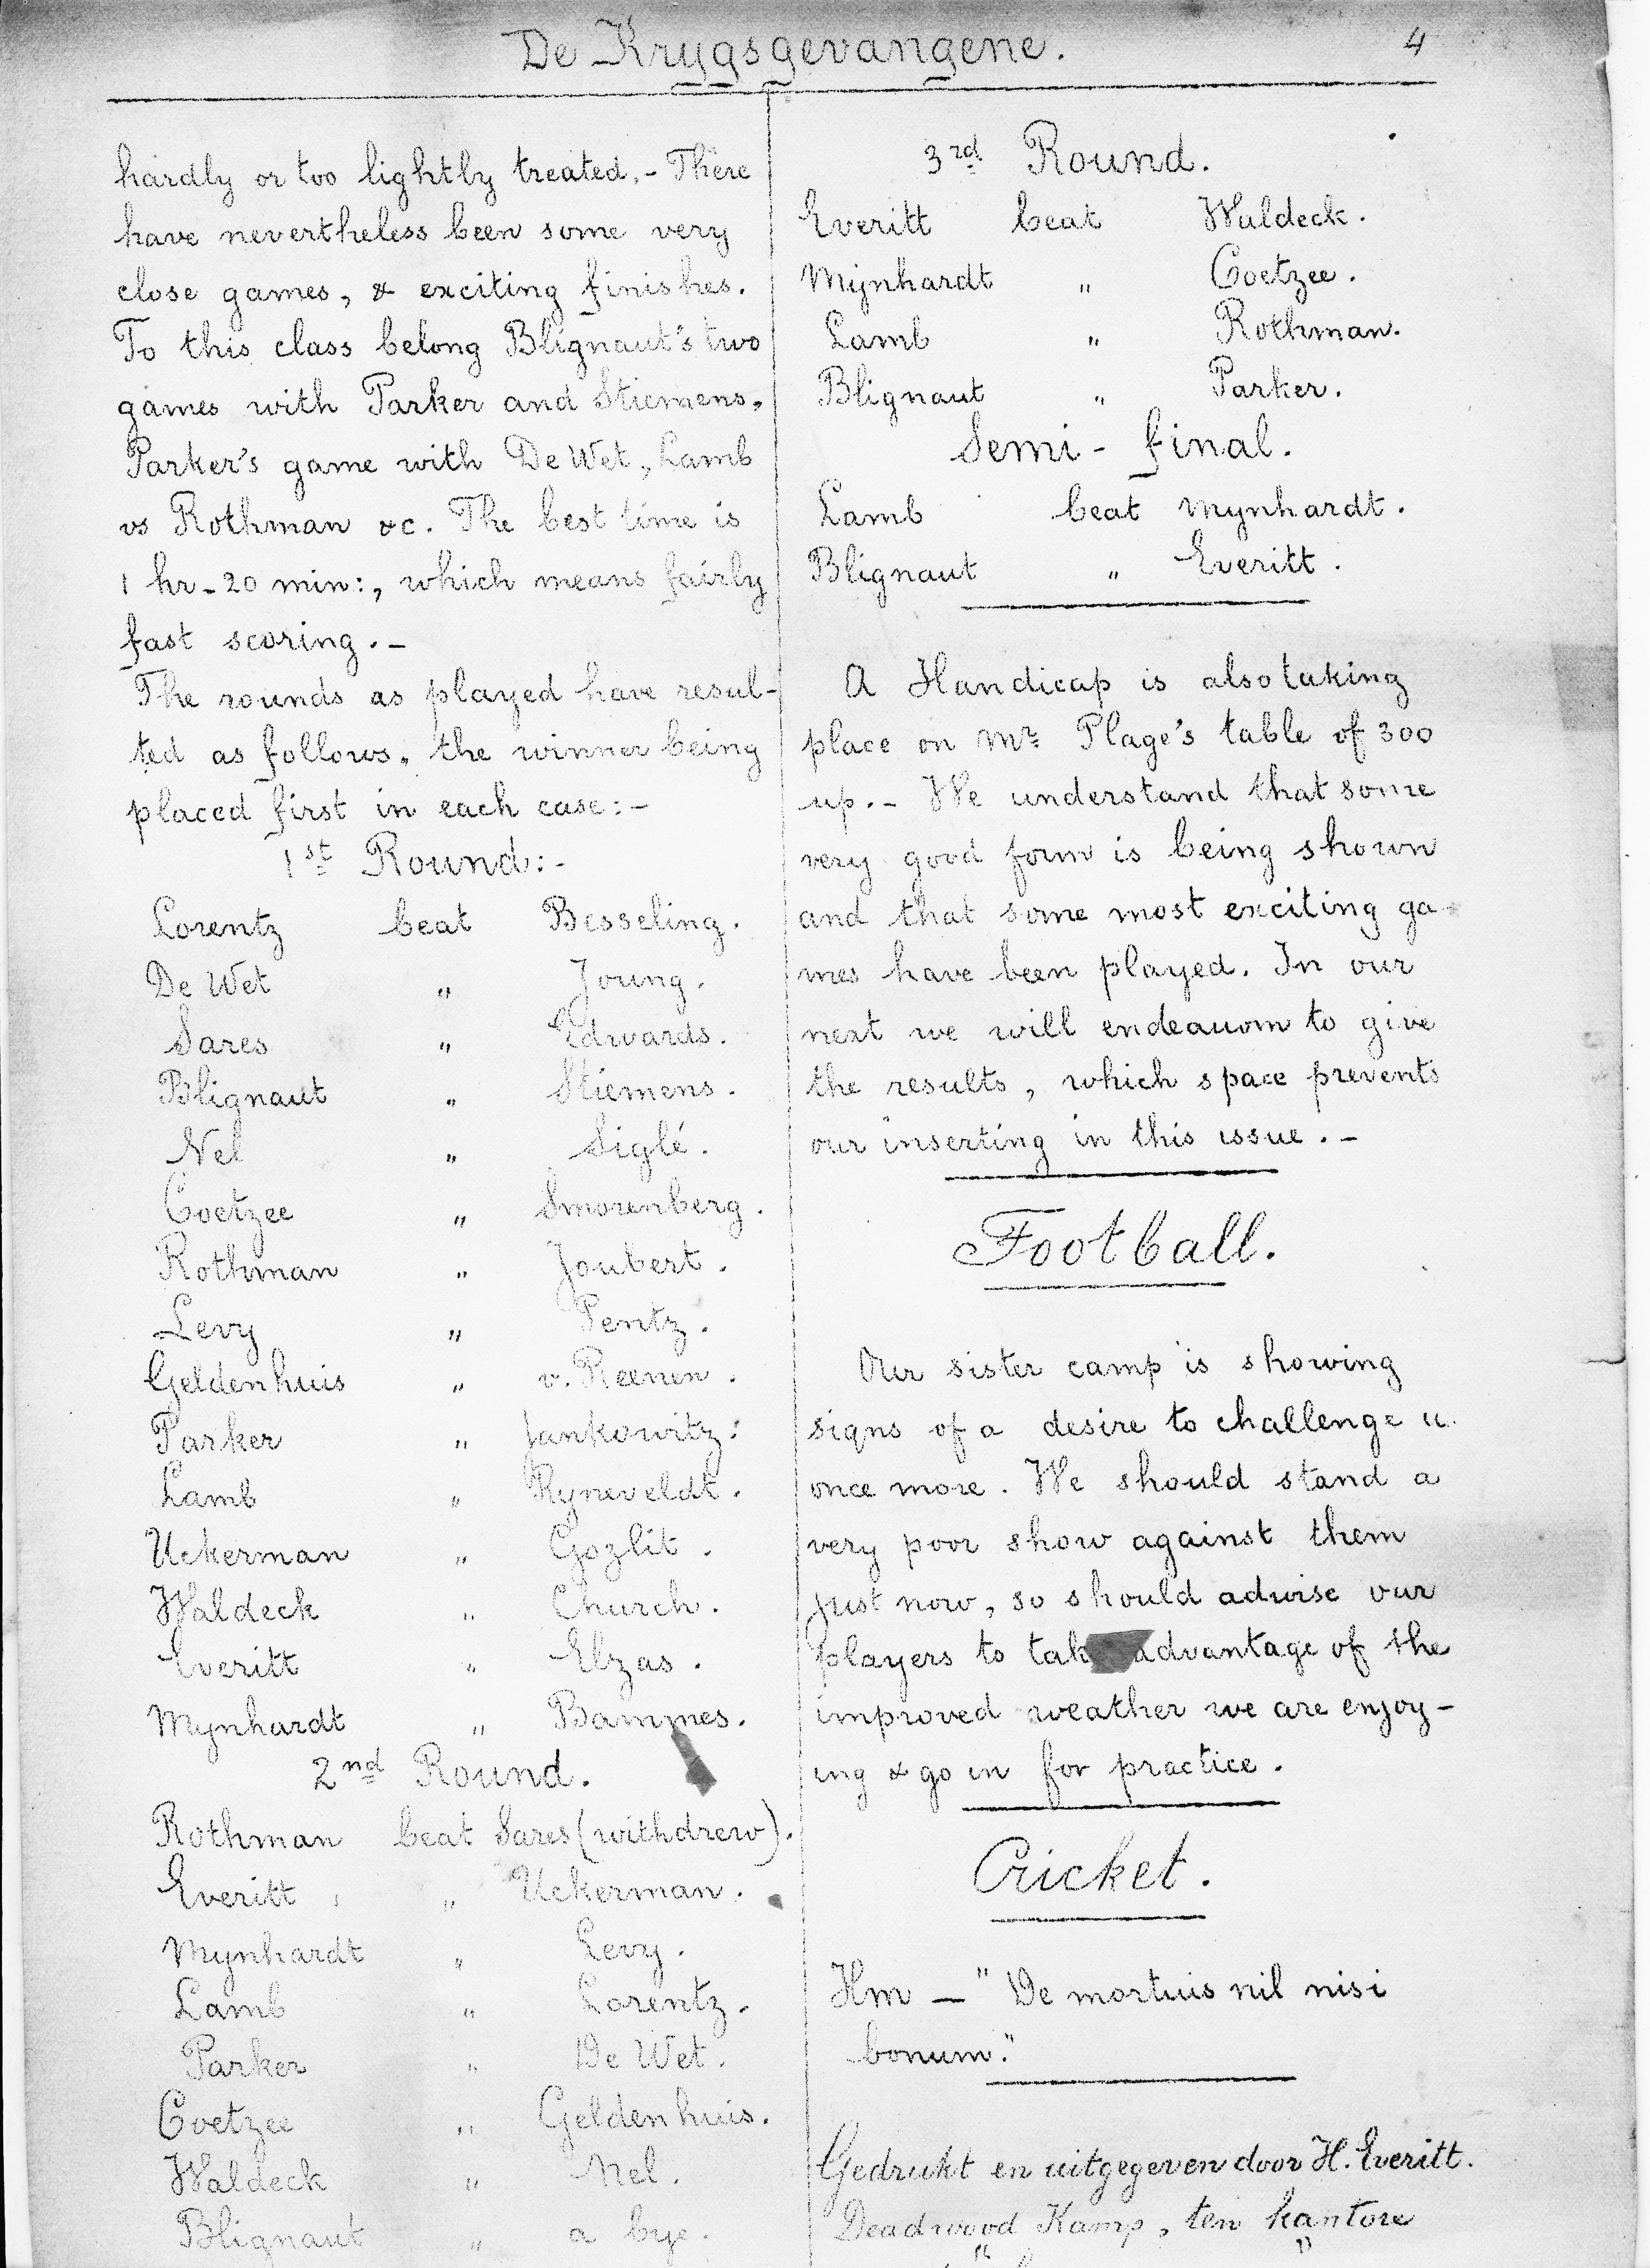 De Krygsgevangene. 4
hardly or too lightly treated.- There
have nevertheless been some very
close games, & exciting finishes.
To this class belong Blignaut's two
games with Parker and Stiemens,
Parker's game with De Wet, Lamb
vs Rothman &c. The best time is
1 hr-20 min:, which means fairly
fast scoring.-
The rounds as played have resul-
ted as follows, the winner being
placed first in each case:-
1st Round:-
Lorentz beat Besseling.
De Wet " Joung.
Sares " Edwards.
Blignaut " Stiemens.
Nel " Siglé.
Coetzee " Smorenberg.
Rothman " Joubert.
Levy " Pentz.
Geldenhuis " v. Reenen.
Parker " Jankowitz:
Lamb " Ryneveldt.
Uckerman " Gozlit.
Waldeck " Church.
Everitt " Elzas.
Mynhardt " Bammes.
2nd Round.
Rothman beat Sares (withdrew).
Everitt " Uckerman.
Mynhardt " Levy.
Lamb " Lorentz.
Parker " De Wet.
Coetzee " Geldenhuis.
Waldeck " Nel.
Blignaut " a bye.
3rd Round.
Everitt beat Waldeck.
Mynhardt " Coetzee.
Lamb " Rothman.
Blignaut " Parker.
Semi-final.
Lamb beat Mynhardt.
Blignaut " Everitt.
A Handicap is also taking
place on Mr Plage's table of 300
up.- We understand that some
very good form is being shown
and that some most exciting ga-
mes have been played. In our
next we will endeavour to give
the results, which space prevents
our inserting in this issue.-
Football.
Our sister camp is showing
signs of a desire to challenge u
once more. We should stand a
very poor show against them
just now, so should advise our
players to tak advantage of the
improved weather we are enjoy-
ing & go in for practice.
Cricket.
Hm - "De mortuis nil nisi
bonum."
Gedrukt en uitgegeven door H. Everitt.
Deadwood Kamp, ten kantore